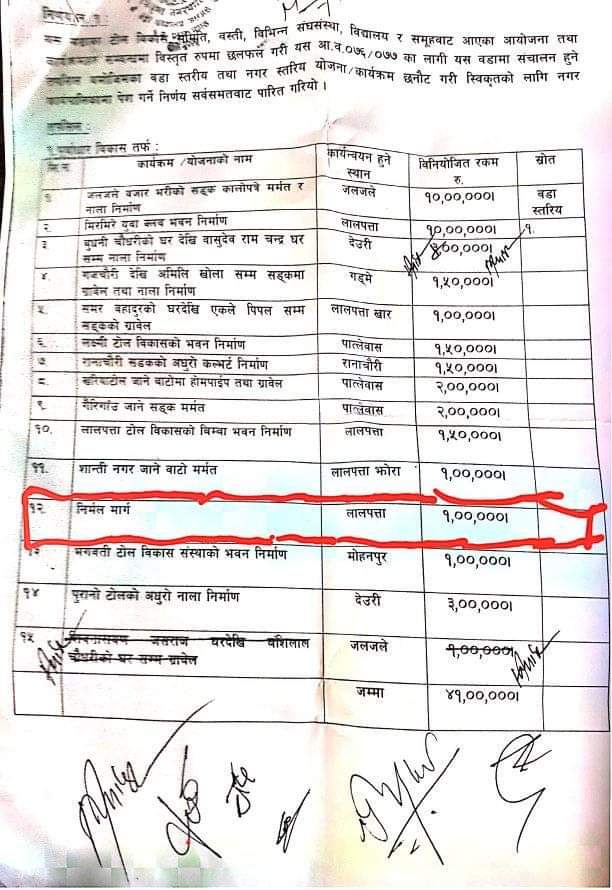 निर्णय नं. १
यस वडाका टोल विकास समिति, वस्ती, विभिन्न संघसंस्था, विद्यालय र समूहवाट आएका आयोजना तथा
कार्यक्रमहरु सम्वन्धमा विस्तृत रुपमा छलफल गरी यस आ.व.०७६/०७७ का लागी यस वडामा संचालन हुने
तपसिल बमोजिमका वडा स्तरीय तथा नगर स्तरिय योजना/कार्यक्रम छनौट गरी स्विकृतको लागि नगर
कार्यपालिकामा पेश गर्ने निर्णय सर्वसमतवाट पारित गरियो ।
तपसिल :
१.पूर्वाधार विकास तर्फ :
सि.नं. कार्यक्रम /योजनाको नाम कार्यन्वयन हुने स्थान विनियोजित रकम रु. स्रोत
१ जलजले वजार भरीको सड्क कालोपत्रे मर्मत र नाला निर्माण जलजले १०,००,०००। वडा स्तरिय
२. मिरमिरे युवा क्लव भवन निर्माण लालपत्ता १०,००,०००। १.
३ बुधनी चौधरीको घर देखि वासुदेव राम चन्द्र घर सम्म नाला निर्माण देउरी ००,०००।
४. गजचौरी देखि अमिलि खोला सम्म सड्कमा ग्रावेल तथा नाला निर्माण गड्मे १,५०,०००।
५. समर वहादुरको घरदेखि एकले पिपल सम्म सड्कको ग्रावेल लालपत्ता खार १,००,०००।
६. लक्ष्मी टोल विकासको भवन निर्माण पात्लेवास १,५०,०००।
७ रानाचौरी सडकको अधुरो कल्भर्ट निर्माण रानाचौरी १,५०,०००।
८. खरियाटोल जाने वाटोमा होमपाईप तथा ग्रावेल पात्लेवास २,००,०००।
९ गैरिगाँउ जाने सड्क मर्मत पात्लेवास २,००,०००।
१०. लालपत्ता टोल विकासको विम्वा भवन निर्माण लालपत्ता १,५०,०००।
११. शान्ती नगर जाने वाटो मर्मत लालपत्ता झोरा १,००,०००।
१२. निर्मल मार्ग लालपत्ता १,००,०००।
१३ भगवती टोल विकास संस्थाको भवन निर्माण मोहनपुर १,००,०००।
१४ पुरानो टोलको अधुरो नाला निर्माण देउरी ३,००,०००।
१५ जसराज घरदेखि वंशिलाल चौधरीको घर सम्म ग्रावेल जलजले १,००,०००।
जम्मा ४१,००,०००।